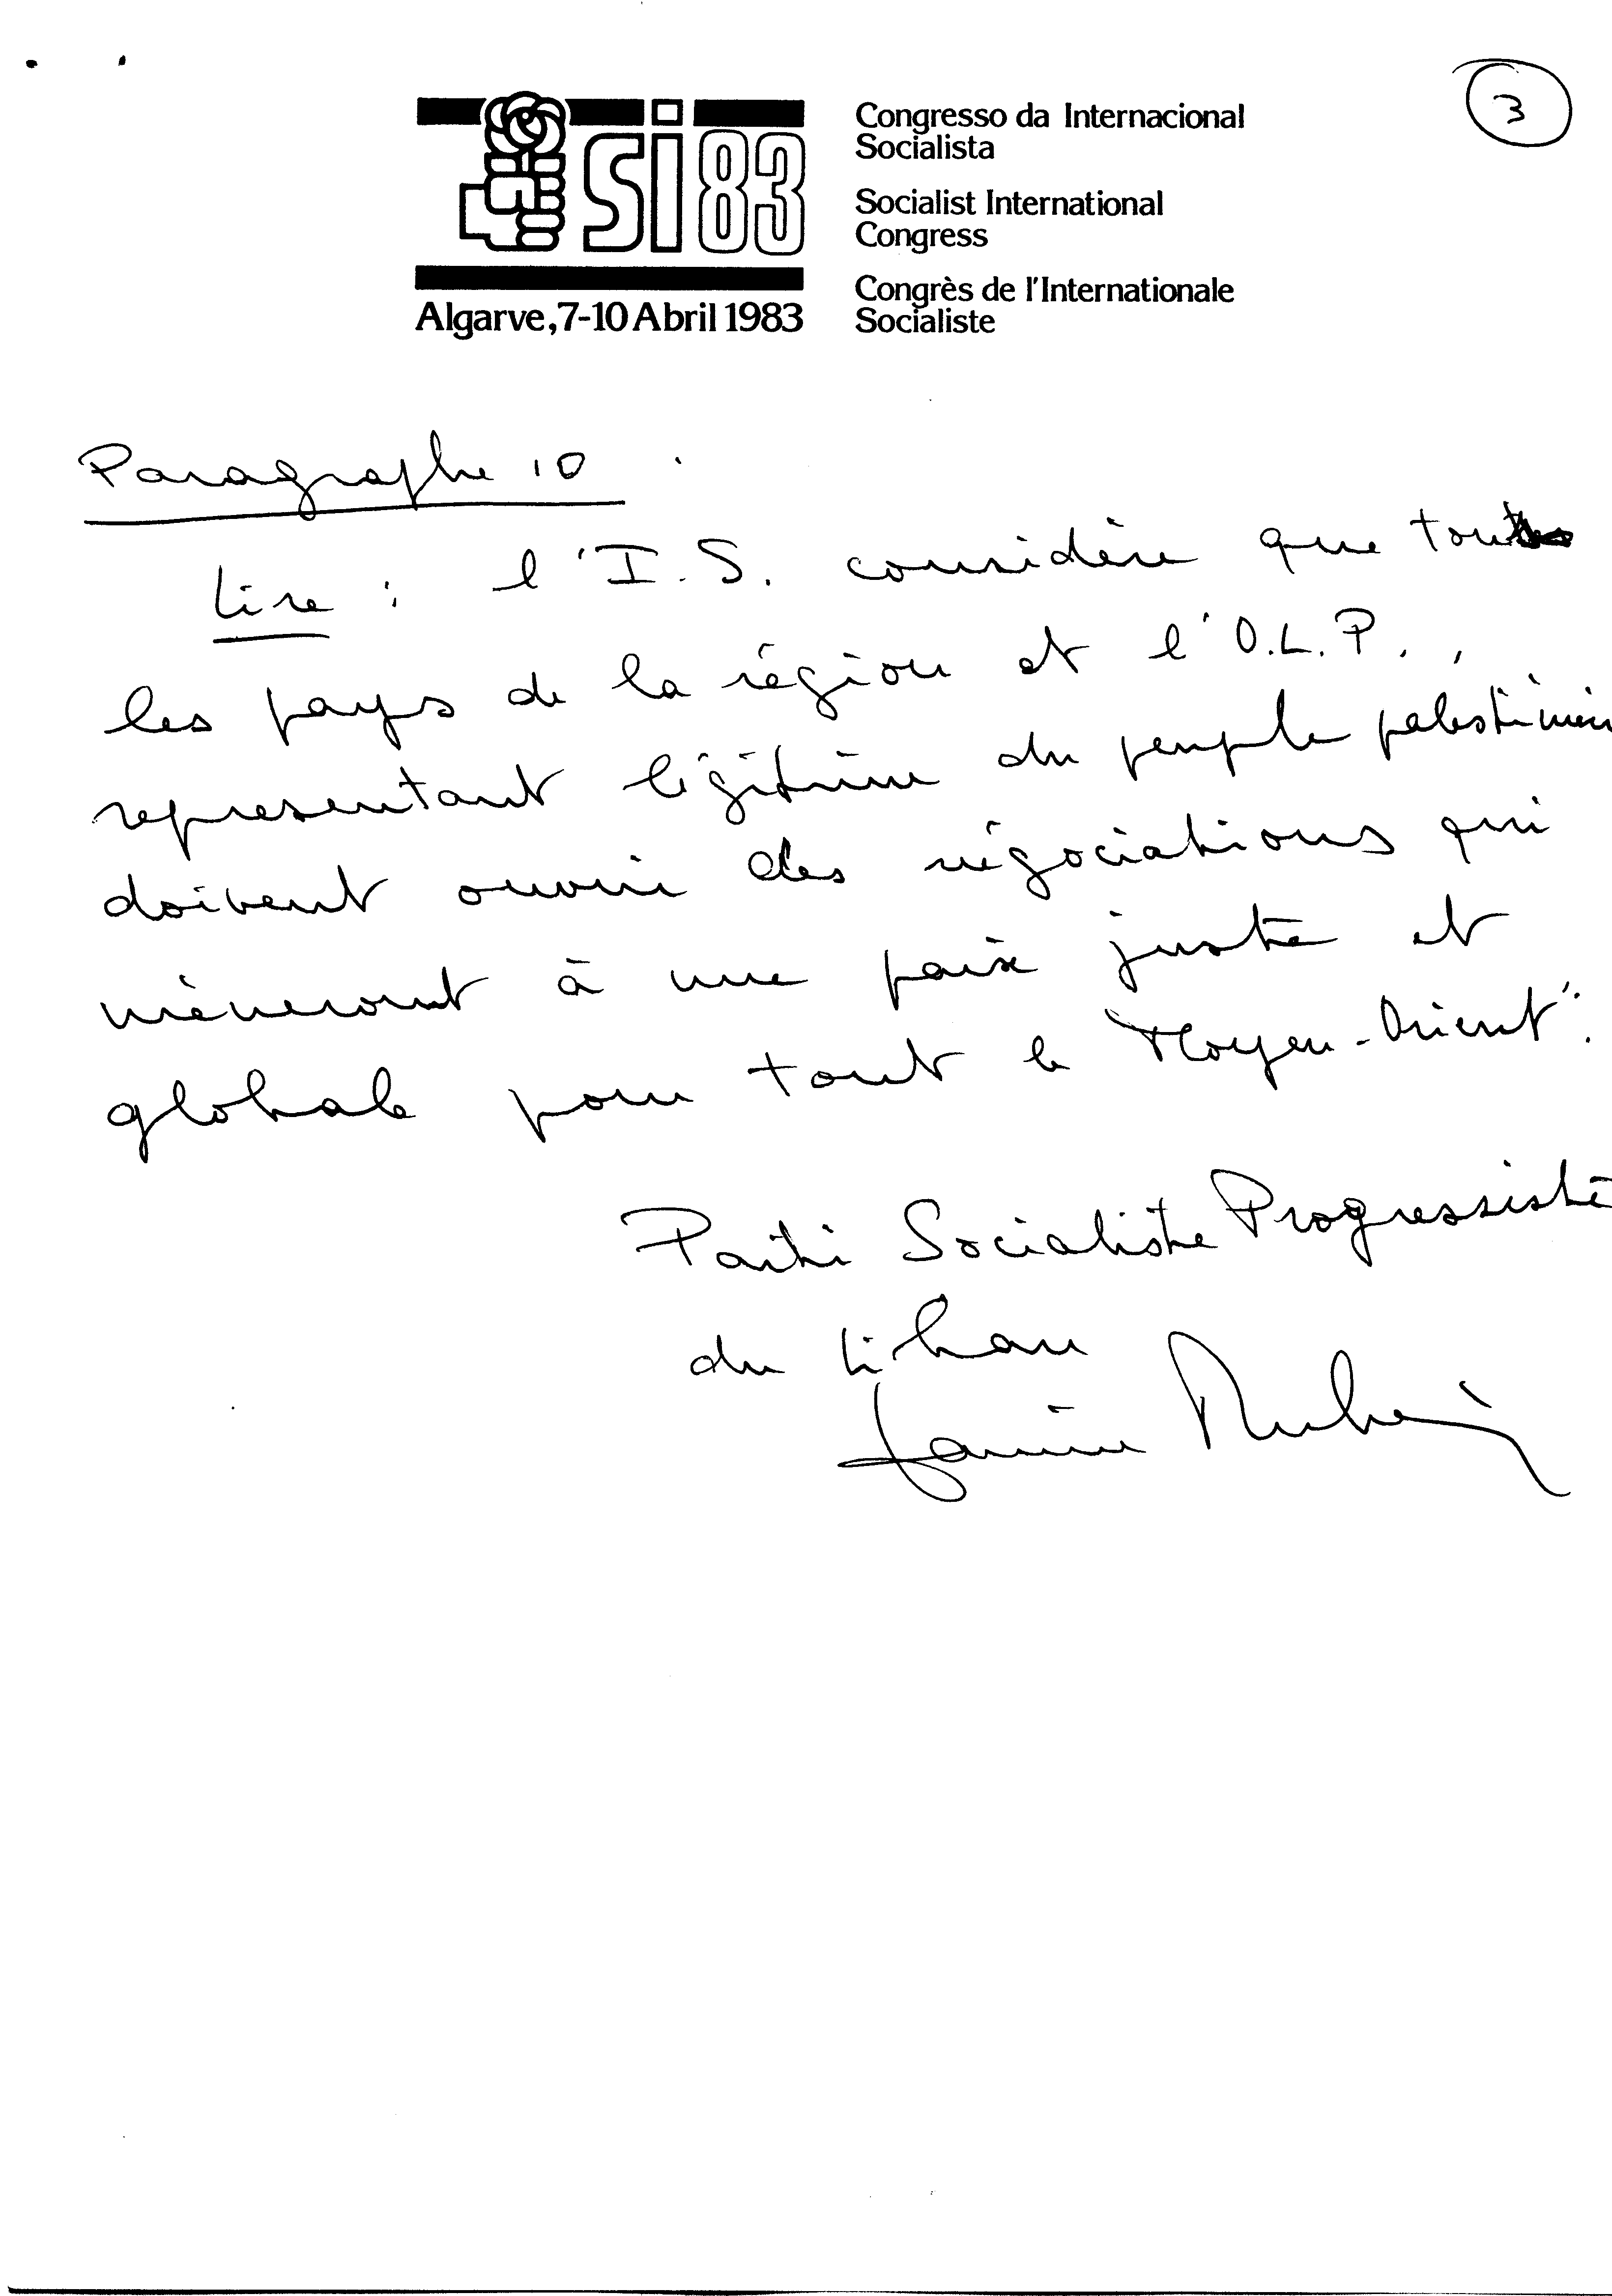 3
si 83
Algarve, 7-10 Abril 1983
Congresso da Internacional
Socialista
Socialist International
Congress
Congrès de l'Internationale
Socialiste
Paragraphe 10
Lire : l'I.S. considère que tous
les pays de la région et l'O.L.P.,
representant légitime du peuple palestinien
doivent ouvrir des négociations qui
mèneront à une paix juste et
globale pour tout le Moyen-Orient".
Parti Socialiste Progressiste
du Liban